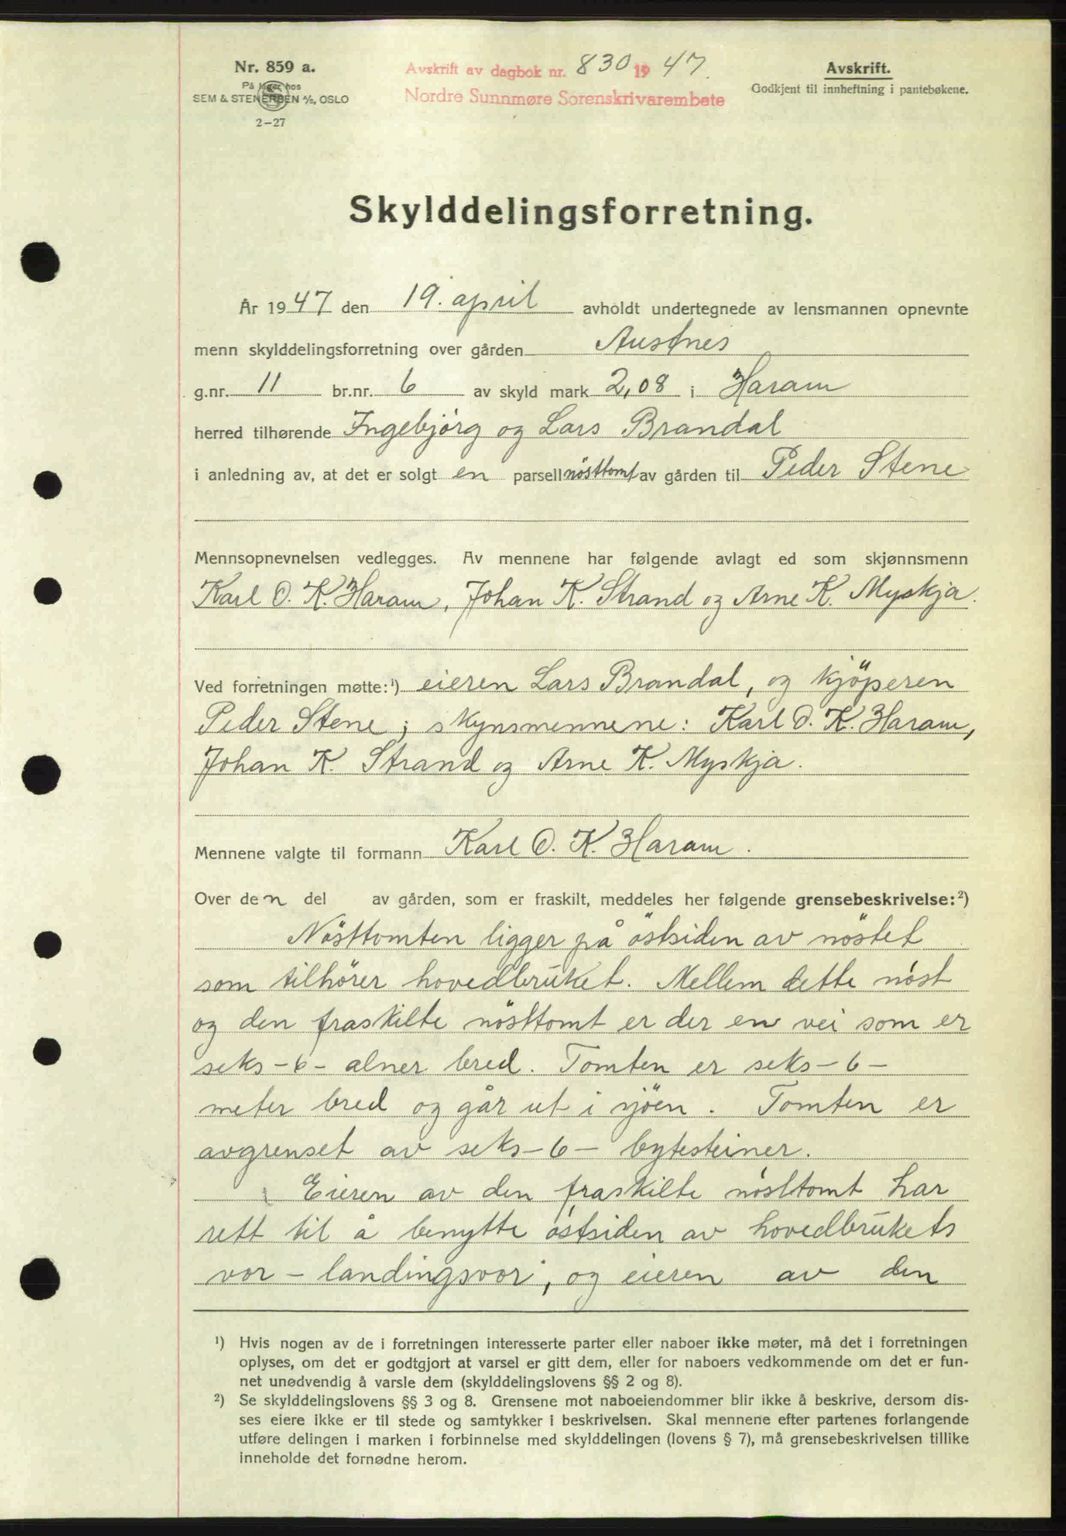 Nr. 859 a.
På lager hos
SEM & STENERSEN A/S, OSLO
2-27
Avskrift av dagbok nr. 830 1947.
Nordre Sunnmøre Sorenskrivarembete
Avskrift.
Godkjent til innheftning i pantebøkene.
Skylddelingsforretning.
År 1947 den 19. april avholdt undertegnede av lensmannen opnevnte
menn skylddelingsforretning over gården Austnes
g.nr. 11 br.nr. 6 av skyld mark 2,08 i Haram
herred tilhørende Ingebjörg og Lars Brandal
i anledning av, at det er solgt en parsell nösttomt av gården til Peder Stene
Mennsopnevnelsen vedlegges. Av mennene har følgende avlagt ed som skjønnsmenn
Karl O. K. Haram, Johan K. Strand og Arne K. Myskja.
Ved forretningen møtte:¹) eieren Lars Brandal, og kjöperen
Peder Stene; skynsmennene: Karl O. K. Haram,
Johan K. Strand og Arne K. Myskja.
Mennene valgte til formann Karl O. K. Haram.
Over den del av gården, som er fraskilt, meddeles her følgende grensebeskrivelse:²)
Nösttomten ligger på östsiden av nöstet
som tilhörer hovedbruket. Mellem dette nöst
og den fraskilte nösttomt er der en vei som er
seks-6- alner bred. Tomten er seks-6-
meter bred og går ut i sjöen. Tomten er
avgrenset av seks-6- bytesteiner.
Eieren av den fraskilte nösttomt har
rett til å benytte östsiden av hovedbrukets
vor - landingsvor, og eieren av den
¹) Hvis nogen av de i forretningen interesserte parter eller naboer ikke møter, må det i forretningen
oplyses, om det er godtgjort at varsel er gitt dem, eller for naboers vedkommende om det er fun-
net unødvendig å varsle dem (skylddelingslovens §§ 2 og 8).
²) Se skylddelingslovens §§ 3 og 8. Grensene mot naboeiendommer blir ikke å beskrive, dersom dis-
ses eiere ikke er til stede og samtykker i beskrivelsen. Skal mennene efter partenes forlangende
utføre delingen i marken i forbinnelse med skylddelingen (lovens § 7), må grensebeskrivelsen tillike
inneholde det fornødne herom.